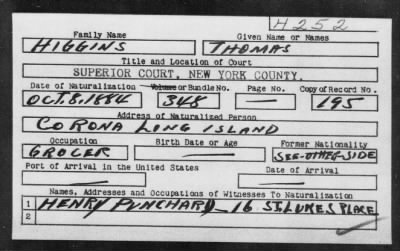 H252
Family Name Given Name or Names
HIGGINS THOMAS
Title and Location of Court
SUPERIOR COURT, NEW YORK COUNTY.
Date of Naturalization Volume or Bundle No. Page No. Copy of Record No.
OCT. 8. 1884 348 — 195
Address of Naturalized Person
CORONA LONG ISLAND
Occupation Birth Date or Age Former Nationality
GROCER — SEE-OTHER-SIDE
Port of Arrival in the United States Date of Arrival
— —
Names, Addresses and Occupations of Witnesses To Naturalization
1 HENRY PUNCHARD — 16 ST. LUKES PLACE
2